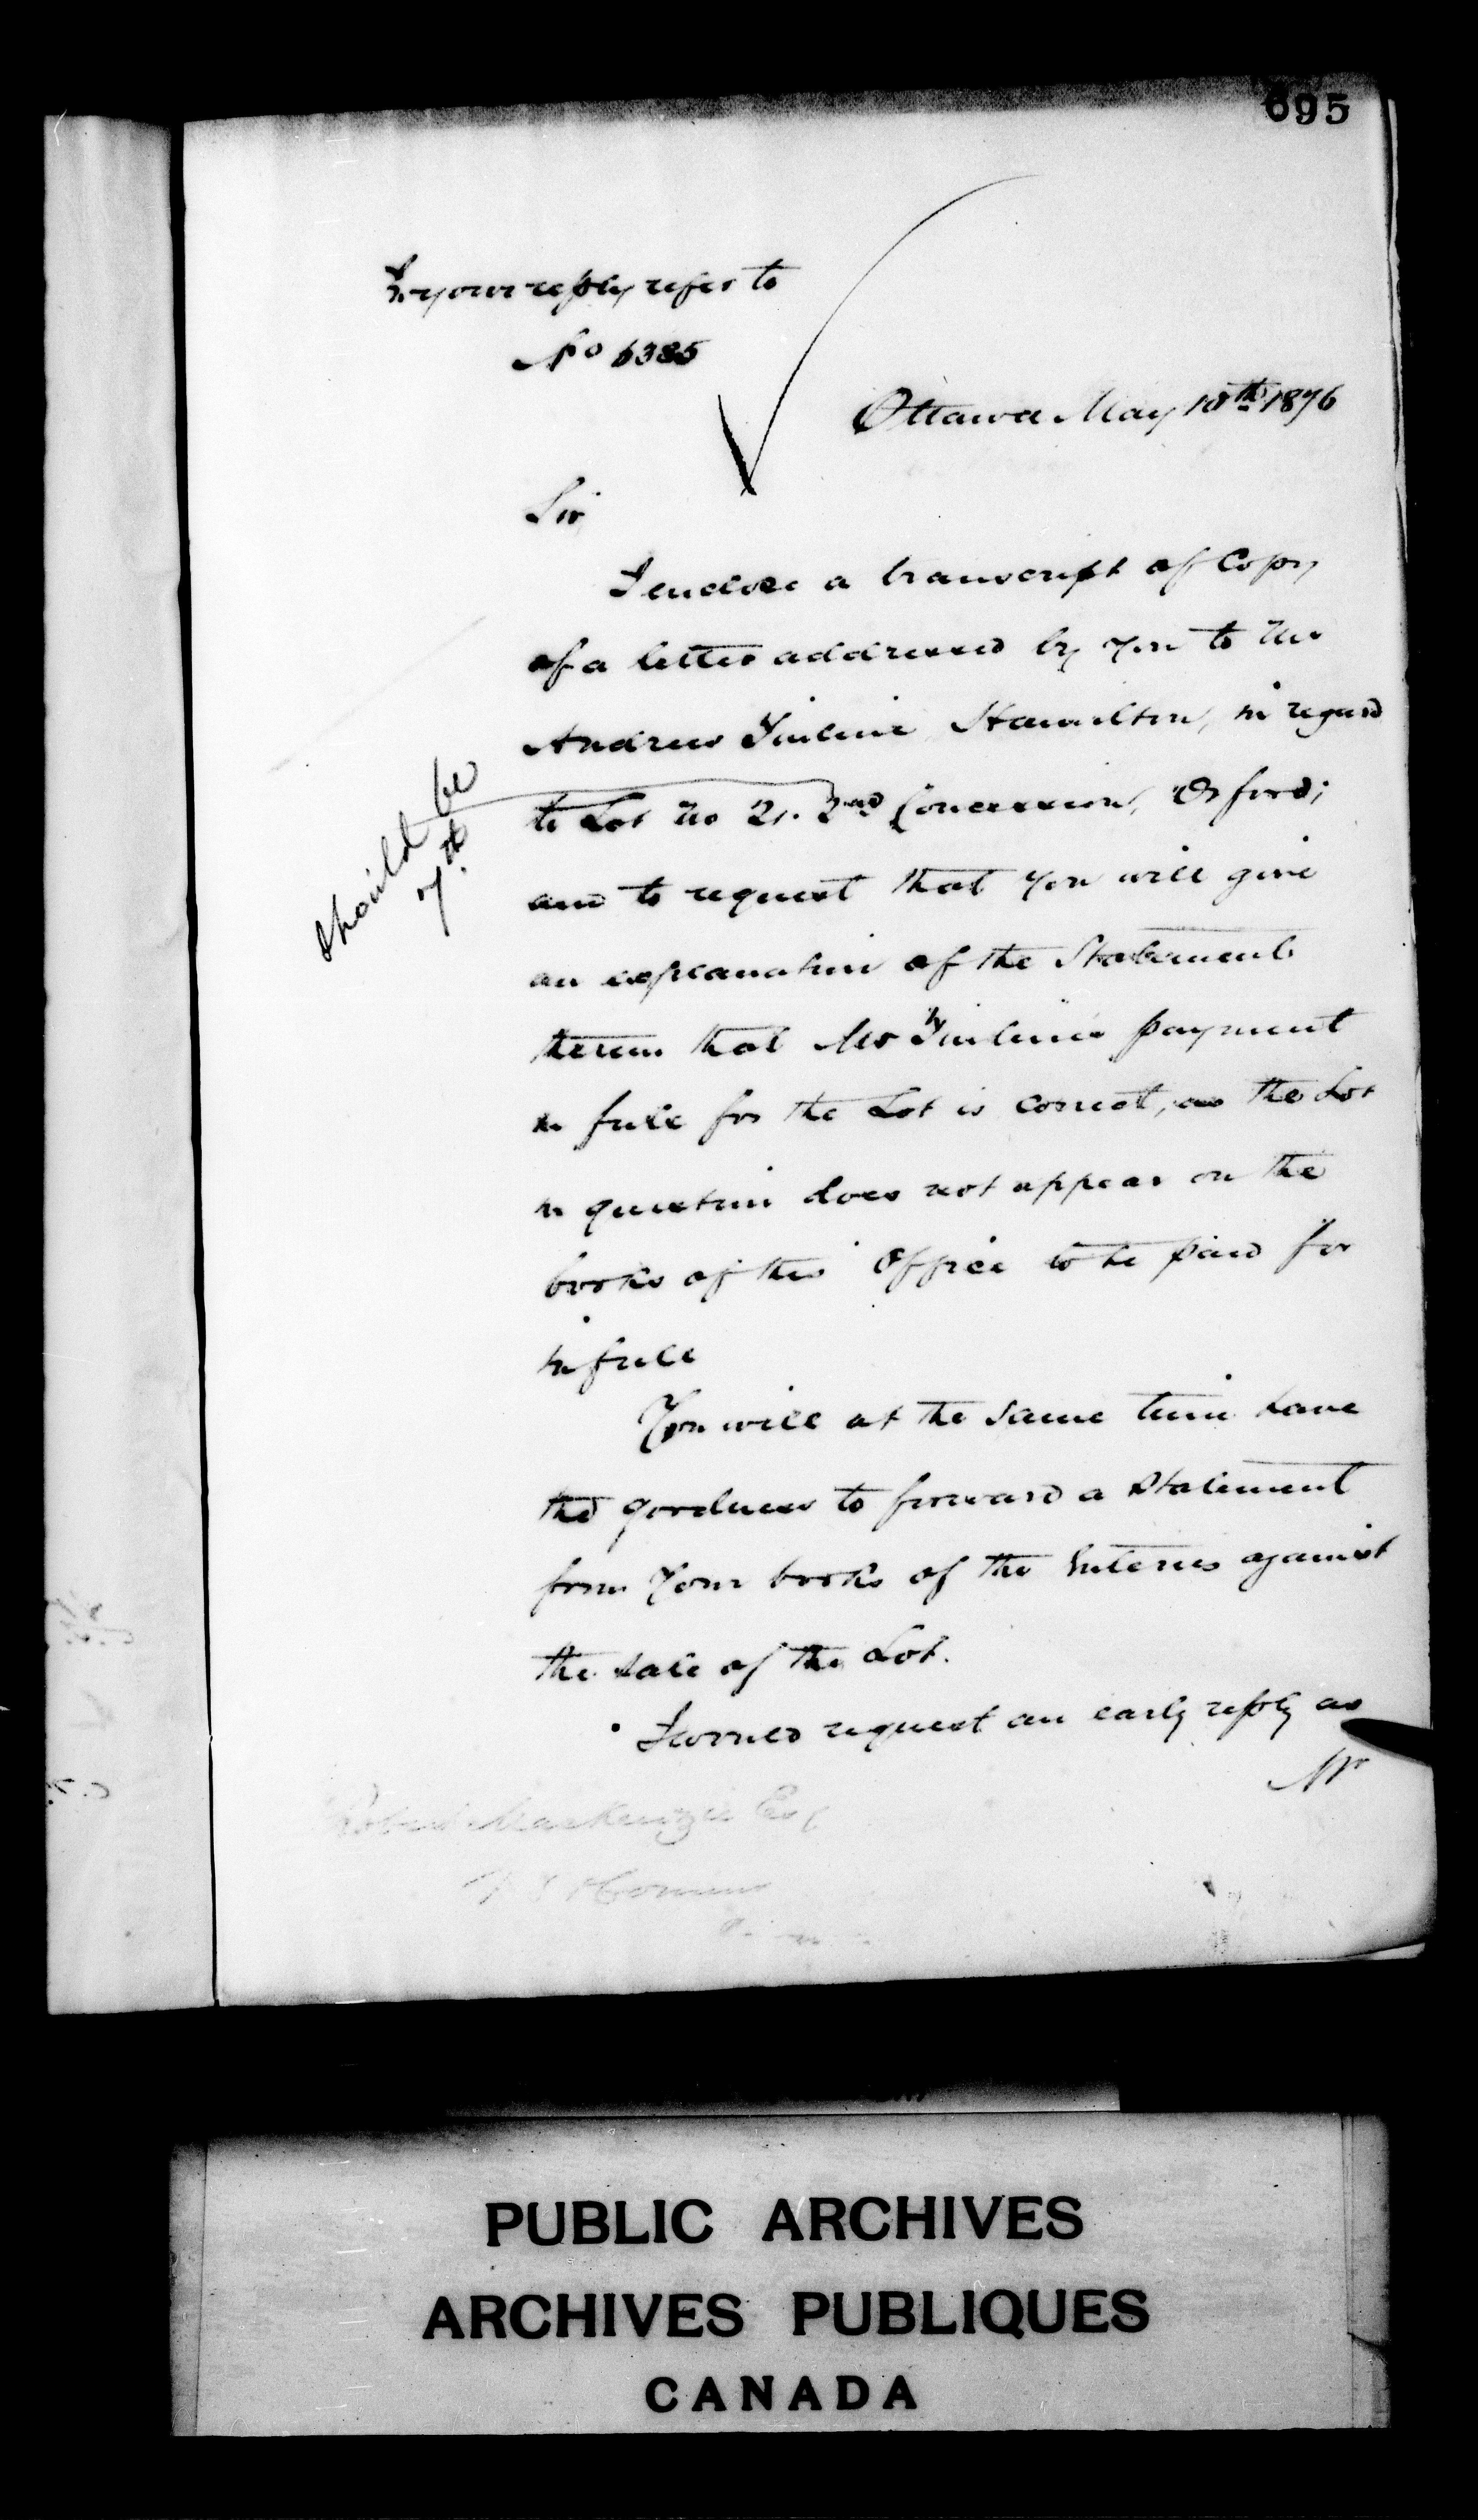 695
In your reply refer to
No 6385
Ottawa May 18th 1876
Sir
I enclose a transcript of Copy
of a letter addressed by you to Mr
Andrew Hamilton, in regard
to Lot No 21. 2nd Concession, Orford;
should be
7th
and to request that you will give
an explanation of the Statement
therein that Mr payment
in full for the Lot is correct, as the Lot
in question does not appear on the
books of this Office to be paid for
in full
You will at the same time have
the goodness to forward a Statement
from Your books of the Entries against
the sale of the Lot.
I would request an early reply as
Mr
Robert MacKenzie Esq
PUBLIC ARCHIVES
ARCHIVES PUBLIQUES
CANADA